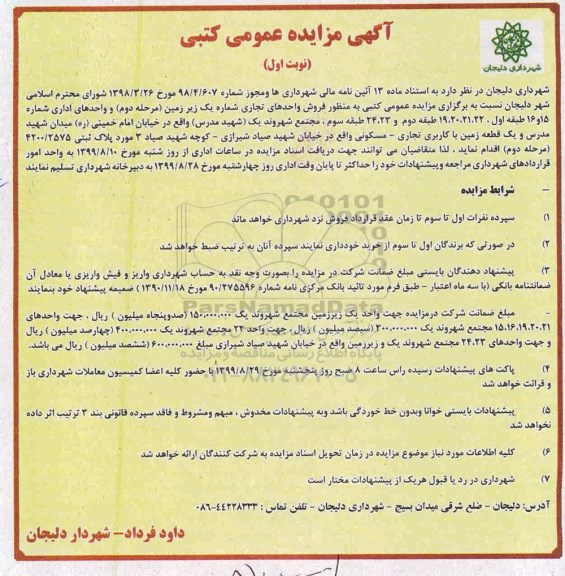 آگهی مزایده عمومی کتبی
(نوبت اول)
شهرداری دلیجان
شهرداری دلیجان در نظر دارد به استناد ماده ۱۳ آئین نامه مالی شهرداری ها ومجوز شماره ۹۸/۴/۶۰۷ مورخ ۱۳۹۸/۳/۲۶ شورای محترم اسلامی
شهر دلیجان نسبت به برگزاری مزایده عمومی کتبی به منظور فروش واحدهای تجاری شماره یک زیر زمین (مرحله دوم) و واحدهای اداری شماره
۱۵و۱۶ طبقه اول ، ۱۹،۲۰،۲۱،۲۲ طبقه دوم و ۲۴،۲۳ طبقه سوم ، مجتمع شهروند یک (شهید مدرس) واقع در خیابان امام خمینی (ره) میدان شهید
مدرس و یک قطعه زمین با کاربری تجاری - مسکونی واقع در خیابان شهید صیاد شیرازی - کوچه شهید صیاد ۳ مورد پلاک ثبتی ۴۲۰۰/۲۵۷۵
(مرحله دوم) اقدام نماید ، لذا متقاضیان می توانند جهت دریافت اسناد مزایده در ساعات اداری از روز شنبه مورخ ۱۳۹۹/۸/۱۰ به واحد امور
قراردادهای شهرداری مراجعه وپیشنهادات خود را حداکثر تا پایان وقت اداری روز چهارشنبه مورخ ۱۳۹۹/۸/۲۸ به دبیرخانه شهرداری تسلیم نمایند
- شرایط مزایده
۱) سپرده نفرات اول تا سوم تا زمان عقد قرارداد فروش نزد شهرداری خواهد ماند
۲) در صورتی که برندگان اول تا سوم از خرید خودداری نمایند سپرده آنان به ترتیب ضبط خواهد شد
۳) پیشنهاد دهندگان بایستی مبلغ ضمانت شرکت در مزایده را بصورت وجه نقد به حساب شهرداری واریز و فیش واریزی یا معادل آن
ضمانتنامه بانکی (با سه ماه اعتبار - طبق فرم مورد تائید بانک مرکزی نامه شماره ۹۰/۲۷۵۵۹۶ مورخ ۱۳۹۰/۱۱/۱۸ ) ضمیمه پیشنهاد خود بنمایند
- مبلغ ضمانت شرکت درمزایده جهت واحد یک زیرزمین مجتمع شهروند یک ۱۵۰،۰۰۰،۰۰۰ (صدوپنجاه میلیون ) ریال ، جهت واحدهای
۱۵،۱۶،۱۹،۲۰،۲۱ مجتمع شهروند یک ۳۰۰،۰۰۰،۰۰۰ (سیصد میلیون ) ریال، جهت واحد ۲۲ مجتمع شهروند یک ۴۰۰،۰۰۰،۰۰۰ (چهارصد میلیون ) ریال
و جهت واحدهای ۲۴،۲۳ مجتمع شهروند یک و زیرزمین واقع در خیابان شهید صیاد شیرازی مبلغ ۶۰۰،۰۰۰،۰۰۰ (ششصد میلیون ) ریال می باشد.
۴) پاکت های پیشنهادات رسیده راس ساعت ۸ صبح روز پنجشنبه مورخ ۱۳۹۹/۸/۲۹ با حضور کلیه اعضا کمیسیون معاملات شهرداری باز
و قرائت خواهد شد
۵) پیشنهادات بایستی خوانا وبدون خط خوردگی باشد وبه پیشنهادات مخدوش ، مبهم ومشروط و فاقد سپرده قانونی بند ۳ ترتیب اثر داده
نخواهد شد
۶) کلیه اطلاعات مورد نیاز موضوع مزایده در زمان تحویل اسناد مزایده به شرکت کنندگان ارائه خواهد شد
۷) شهرداری در رد یا قبول هریک از پیشنهادات مختار است
آدرس: دلیجان - ضلع شرقی میدان بسیج - شهرداری دلیجان - تلفن تماس : ۴۴۲۲۸۳۳۳-۰۸۶
داود فرداد- شهردار دلیجان
ParsNamadData
پایگاه اطلاع رسانی مناقصه ومزایده